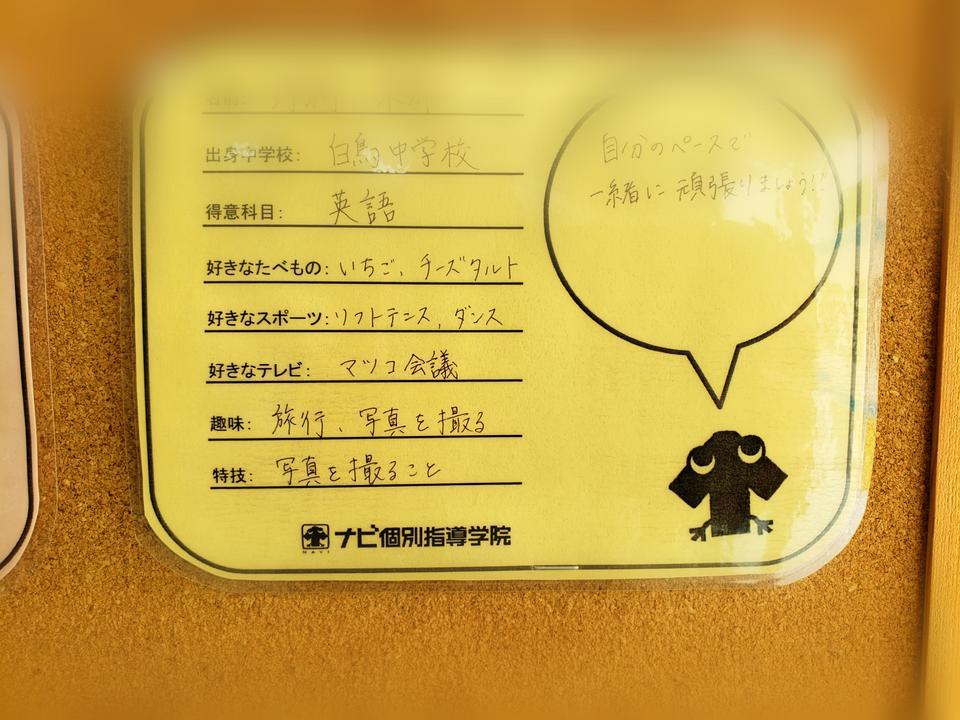 名前:
出身中学校: 白鳥中学校
得意科目: 英語
好きなたべもの: いちご、チーズタルト
好きなスポーツ: ソフトテニス, ダンス
好きなテレビ: マツコ会議
趣味: 旅行、写真を撮る
特技: 写真を撮ること
NAVI
ナビ個別指導学院
自分のペースで
一緒に頑張りましょう!!